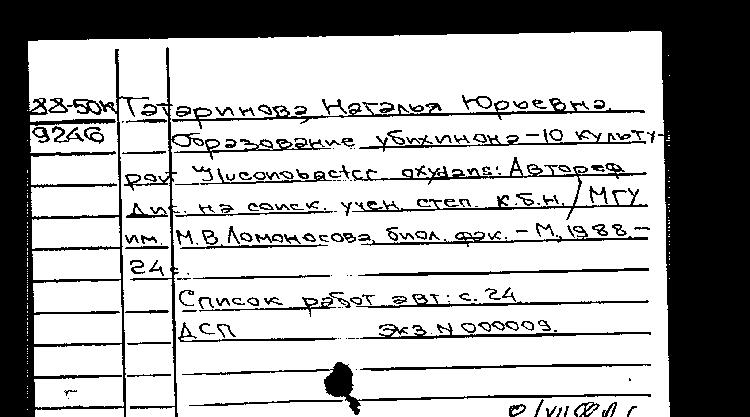 88-50к Татаринова Наталья Юрьевна.
9246 Образование убихинона-10 культу-
рой Gluconobacter oxydans: Автореф
дис. на соиск. учен. степ. к.б.н. / МГУ
им. М.В. Ломоносова, биол. фак. - М., 1988. -
24 с.
Список работ авт: с. 24
ДСП экз N 000009.